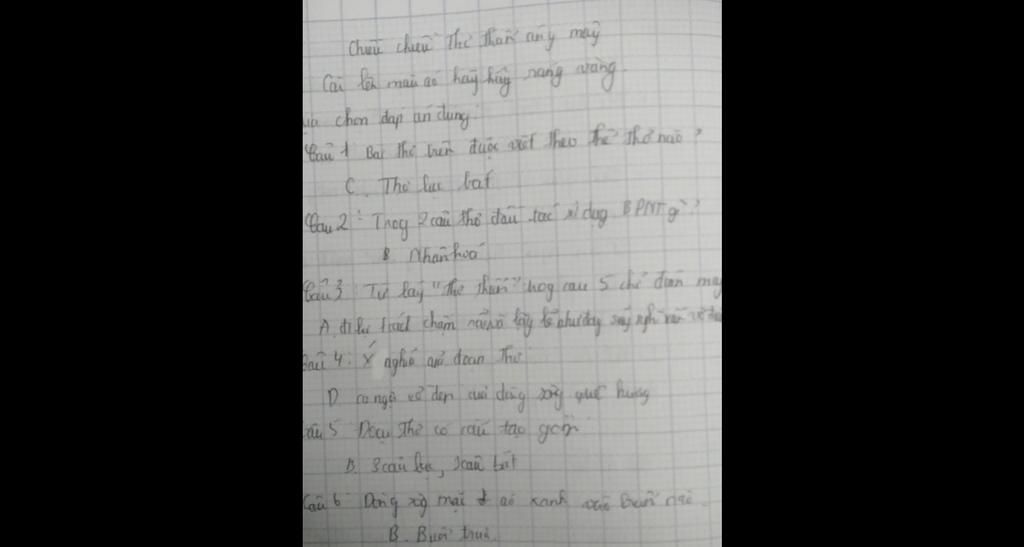 Chiều chiều thơ thẩn áng mây
Cài lên màu áo hây hây ráng vàng.
chọn đáp án đúng.
Câu 1 Bài thơ trên được viết theo thể thơ nào?
C. Thơ lục bát
Câu 2: Trog 2 câu thơ đầu tác sử dụg BPNT gì?
B Nhân hoá
Câu 3: Từ láy "thơ thẩn" trog câu 5 chỉ đám mây
A. đi lại chậm
Câu 4: Ý nghĩa đoạn thơ
D. ca ngợi vẻ đẹp của dòng sông quê hương
Câu 5 Đoạn thơ có cấu tạo gồm
B. 3 câu lục, 3 câu bát
Câu 6 Dòng sôg mặc áo xanh vào buổi nào.
B. Buổi trưa.